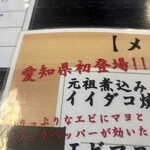 【メ
愛知県初登場!!
元祖煮込み
イイダコ焼
りっぷりなエビにマヨと
ラックペッパーが効いた
エビマヨ